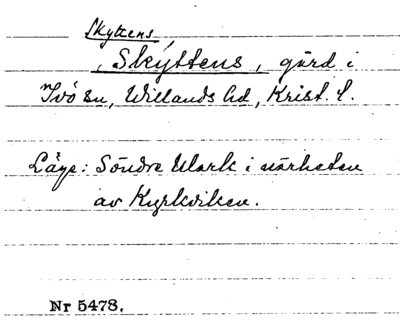 Skyttens
Skyttens, gård i
Ivö sn, Willands hd, Krist. l.
Läge: Söndre Mark i närheten
av Kyrkviken.
Nr 5478.